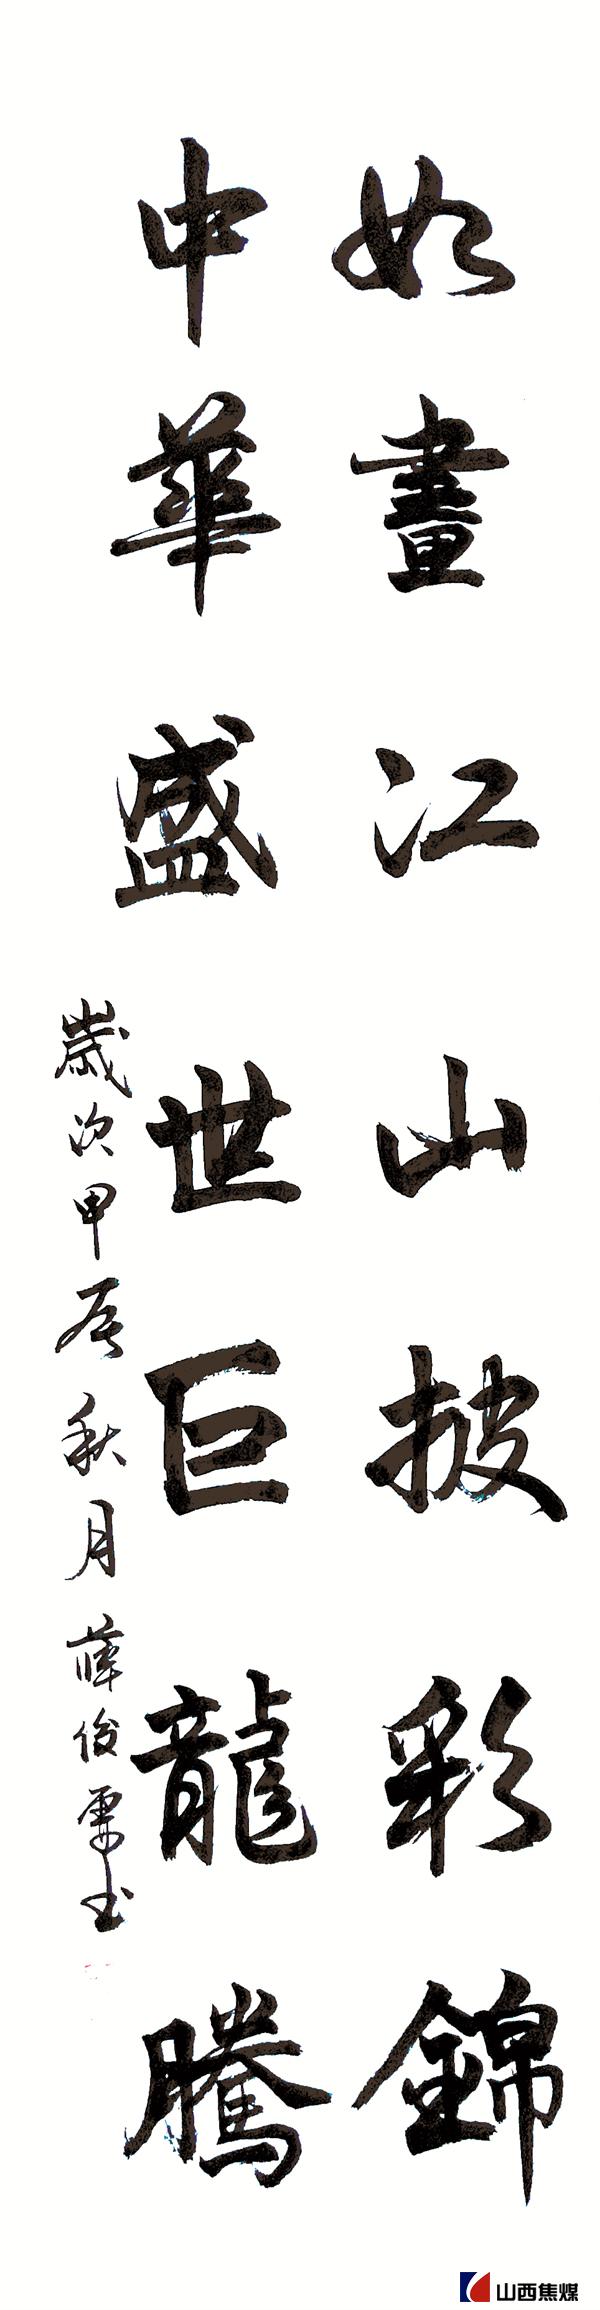 如畫江山披彩錦
中華盛世巨龍騰
歲次甲辰秋月薛俊
山西焦煤